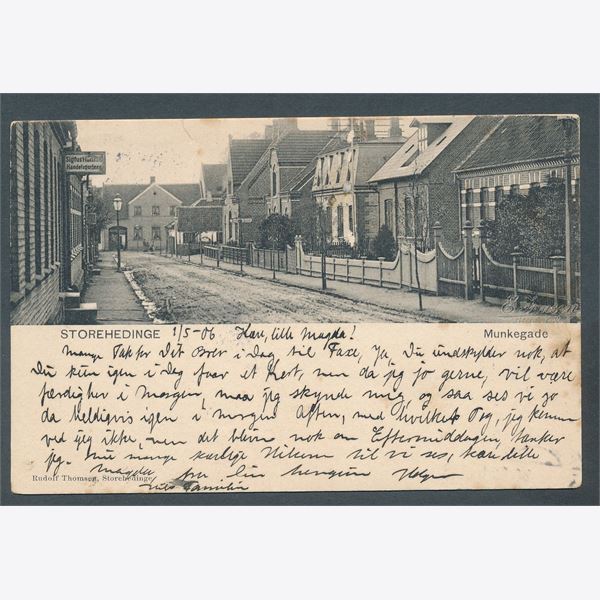 Handelsgartner
STOREHEDINGE 1/5-06 Kære, lille Magda!
Munkegade
Mange Tak for Dit Brev i Dag til Faxe, Ja, Du undskylder nok, at
Du kun igen i Dag faar et Kort, men da jeg jo gerne vil være
færdig her i Morgen, maa jeg skynde mig, og saa ses vi jo
da heldigvis igen i morgen Aften, med hvilket Tog, jeg kommer
ved jeg ikke, men det bliver nok om Eftermiddagen, tænker
jeg. Nu mange kærlige Hilsner til vi ses, kære lille
Magda fra Din hengivne Holger
Hils Familien
Rudolf Thomsen, Storehedinge